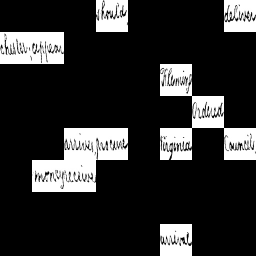 should, deliver
chester, appear
Fleming
Ordered
arrives, procure Virginia Councils,
money receive
arrival